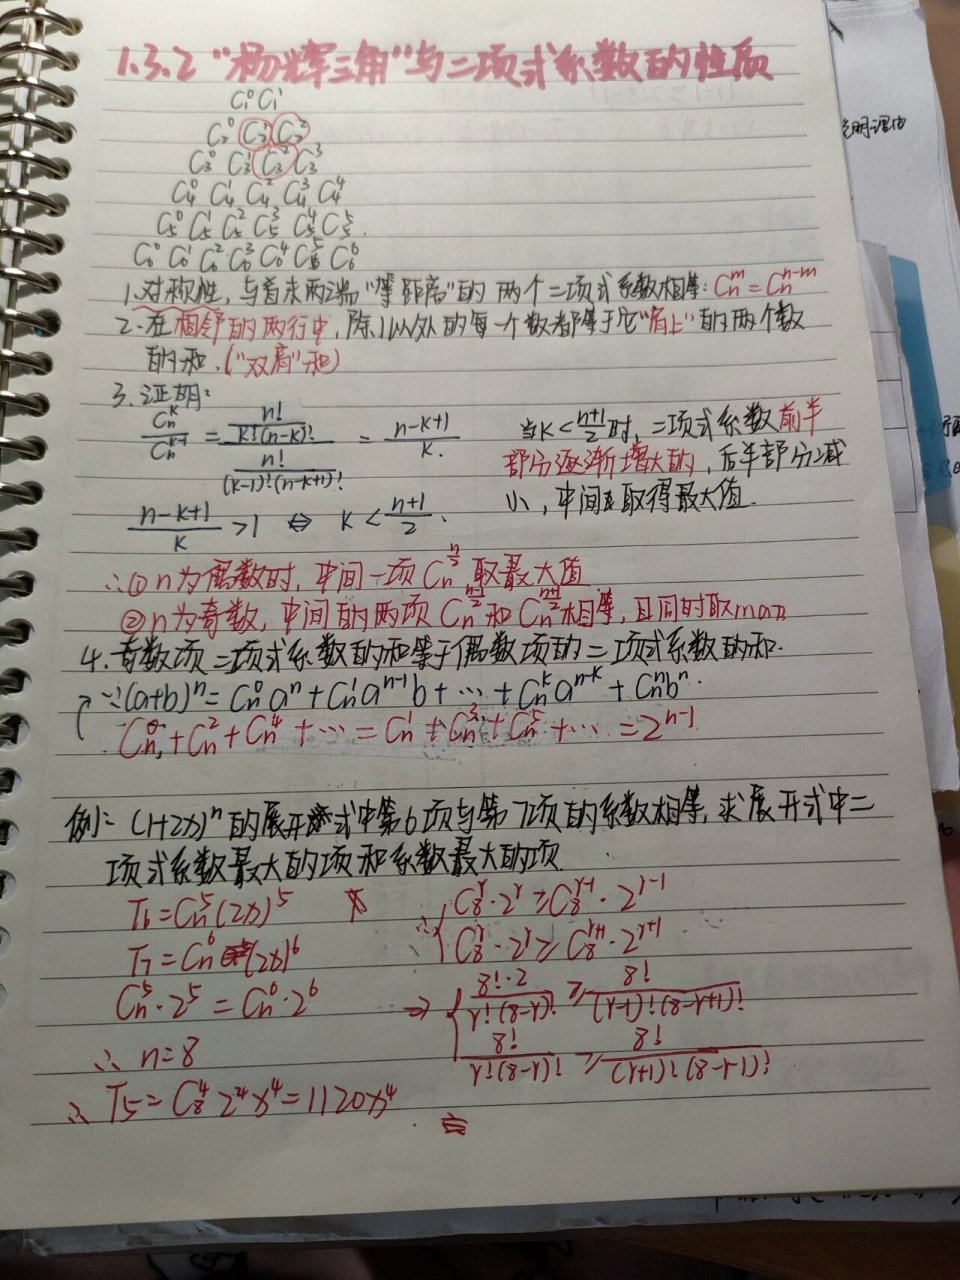 1.3.2 "杨辉三角"与二项式系数的性质
C₁⁰ C₁¹
C₂⁰ C₂¹ C₂²
C₃⁰ C₃¹ C₃² C₃³
C₄⁰ C₄¹ C₄² C₄³ C₄⁴
C₅⁰ C₅¹ C₅² C₅³ C₅⁴ C₅⁵
C₆⁰ C₆¹ C₆² C₆³ C₆⁴ C₆⁵ C₆⁶
1.对称性,与首末两端"等距离"的两个二项式系数相等:Cₙᵐ=Cₙⁿ⁻ᵐ
2.在相邻的两行中,除1以外的每一个数都等于它"肩上"的两个数
的和.("双肩"和)
3.证明:
Cₙᵏ/Cₙᵏ⁻¹ = (n!/(k!(n-k)!))/(n!/((k-1)!(n-k+1)!)) = (n-k+1)/k.
(n-k+1)/k >1 ⇔ k<(n+1)/2.
当k<(n+1)/2时,二项式系数前半
部分逐渐增大的,后半部分减
小,中间取得最大值.
∴①n为偶数时,中间一项Cₙ^(n/2)取最大值
②n为奇数,中间的两项Cₙ^((n-1)/2)和Cₙ^((n+1)/2)相等,且同时取max
4.奇数项二项式系数的和等于偶数项的二项式系数的和.
∵(a+b)ⁿ=Cₙ⁰aⁿ+Cₙ¹aⁿ⁻¹b+…+Cₙᵏaⁿ⁻ᵏ+Cₙⁿbⁿ.
Cₙ⁰+Cₙ²+Cₙ⁴+…=Cₙ¹+Cₙ³+Cₙ⁵+…=2ⁿ⁻¹
例:(1+2x)ⁿ的展开式中第6项与第7项的系数相等,求展开式中二
项式系数最大的项和系数最大的项.
T₆=Cₙ⁵(2x)⁵
T₇=Cₙ⁶(2x)⁶
Cₙ⁵·2⁵=Cₙ⁶·2⁶
∴ n=8
∴ T₅=C₈⁴2⁴x⁴=1120x⁴.
∴{C₈ʳ·2ʳ≥C₈ʳ⁻¹·2ʳ⁻¹
C₈ʳ·2ʳ≥C₈ʳ⁺¹·2ʳ⁺¹
⇒{8!·2/(r!(8-r)!) ≥ 8!/((r-1)!(8-r+1)!)
8!/(r!(8-r)!) ≥ 8!/((r+1)!(8-r-1)!)
说明理由